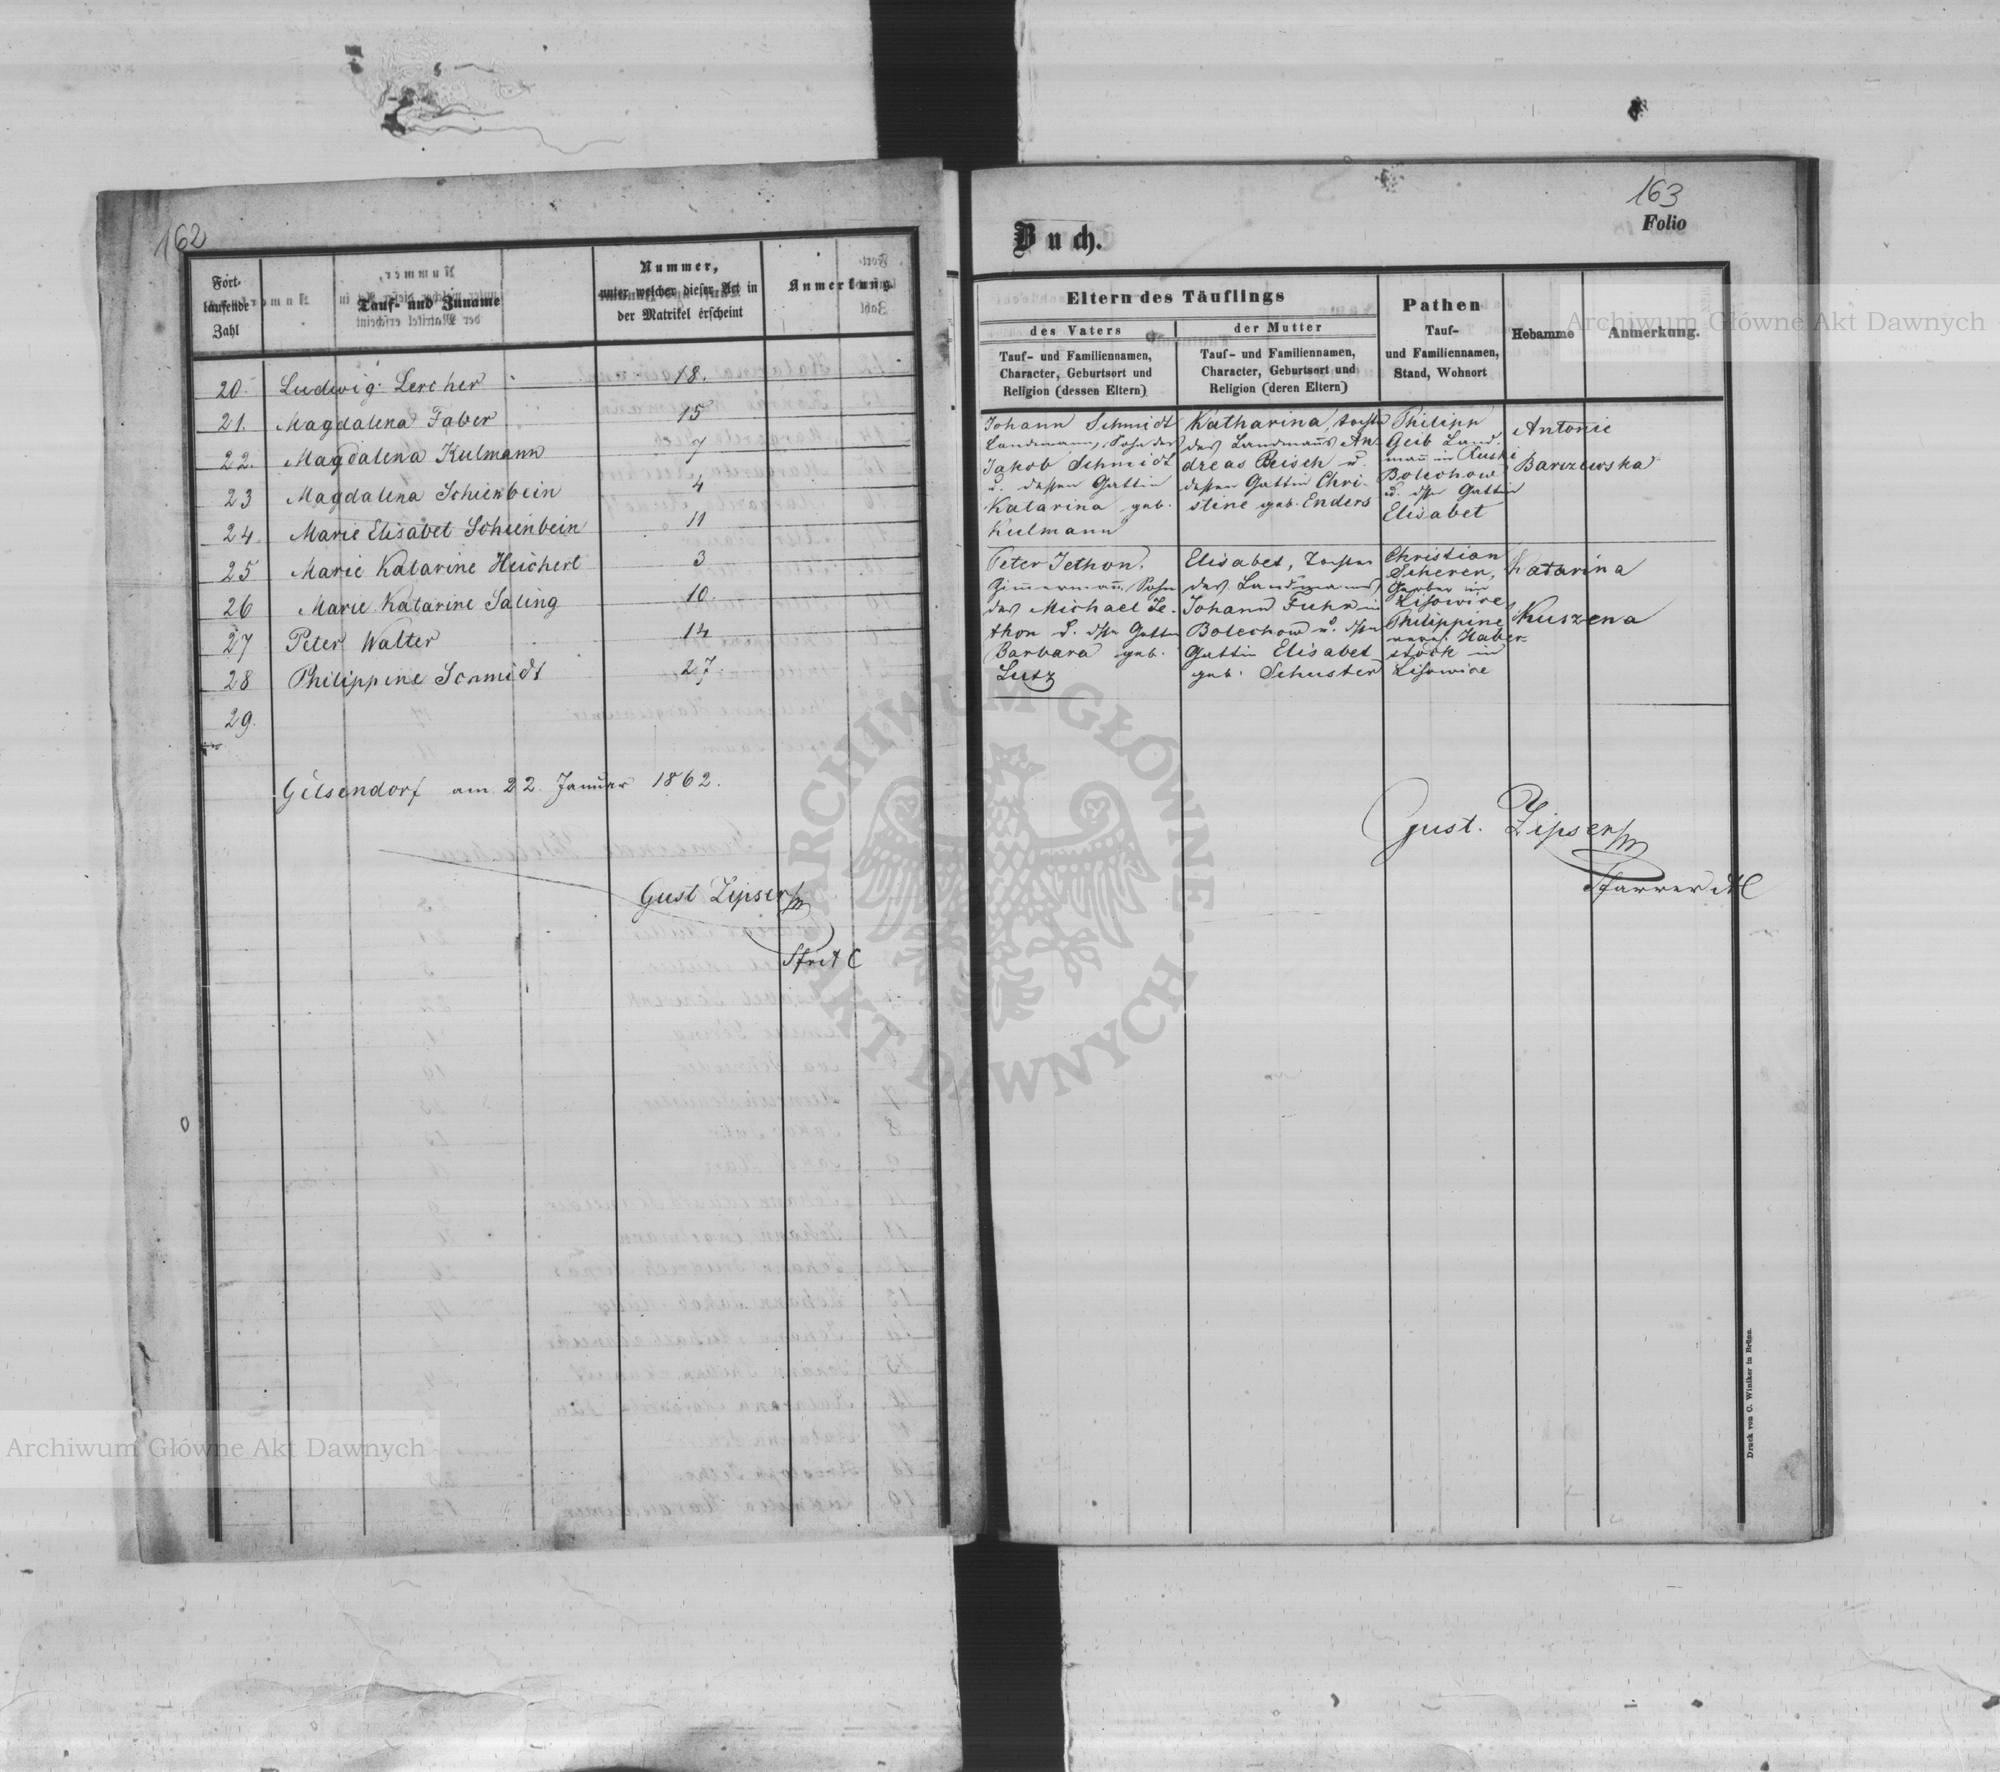 162
Fort-
laufende
Zahl
Tauf- und Zuname
Nummer,
unter welcher dieser Act in
der Matrikel erscheint
Anmerkung
20. Ludwig Lercher 18.
21. Magdalena Faber 15
22. Magdalena Kulmann 7
23 Magdalena Scheinbein 4
24. Marie Elisabet Scheinbein 11
25 Marie Katarine Heichert 3
26 Marie Katarine Saling 10.
27 Peter Walter 14
28 Philippine Schmidt 27.
29.
Gelsendorf am 22. Januar 1862.
Gust Zipser
163
Folio
Buch.
Eltern des Täuflings
des Vaters
Tauf- und Familiennamen,
Character, Geburtsort und
Religion (dessen Eltern)
der Mutter
Tauf- und Familiennamen,
Character, Geburtsort und
Religion (deren Eltern)
Pathen
Tauf-
und Familiennamen,
Stand, Wohnort
Hebamme
Anmerkung.
Johann Schmidt
Landmann, Sohn des
Jakob Schmidt
u. dessen Gattin
Katarina geb.
Kulmann
Katharina, Tochter
des Landmanns An-
dreas Beisch u.
dessen Gattin Chri-
stine geb. Enders
Philipp
Geib Land-
mann in Ruski
Bolechow
u. dessen Gattin
Elisabet
Antonie
Barczewska
Peter Jethon,
Zimmermann, Sohn
des Michael Je-
thon u. dssn Gattin
Barbara geb.
Lutz
Elisabet, Tochter
des Landmanns
Johann Fuhr in
Bolechow u. dssn
Gattin Elisabet
geb. Schuster
Christian
Scherer,
Gerber in
Lisowice,
Philippine
Haber-
stock in
Lisowice
Katarina
Kuszena
Gust. Zipser
Pfarrer AC
Druck von C. Winiker in Brünn.
ARCHIWUM GŁÓWNE AKT DAWNYCH
Archiwum Główne Akt Dawnych
Archiwum Główne Akt Dawnych